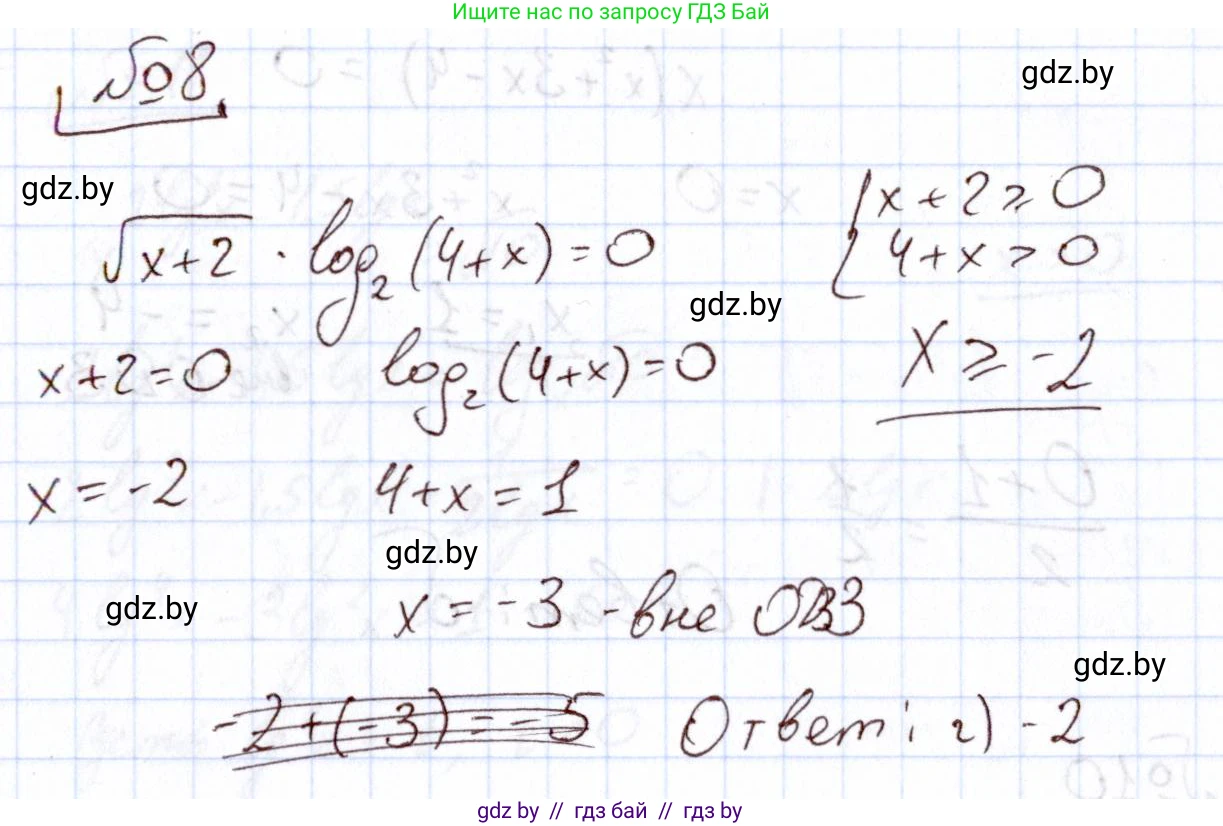 Ищите нас по запросу ГДЗ Бай
№8
gdz.by
gdz.by
√(x+2) · log₂(4+x) = 0
{ x+2 ≥ 0
4+x > 0
gdz.by
x+2=0 log₂(4+x)=0
x ≥ -2
x = -2 4+x = 1
gdz.by
gdz.by
x = -3 - вне ОДЗ
gdz.by
-2+(-3) = -5 Ответ: г) -2
gdz.by // гдз бай // гдз by